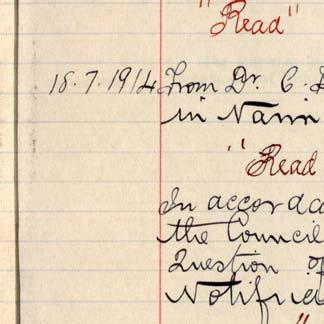 "Read"
18.7.1914 From Dr. C.
in
"Read
In accorda
the Council
Question of
Notified